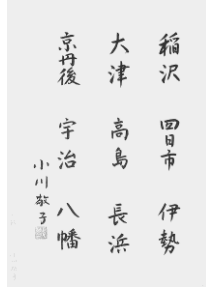 稲沢 四日市 伊勢
大津 高島 長浜
京丹後 宇治 八幡
小川敬子